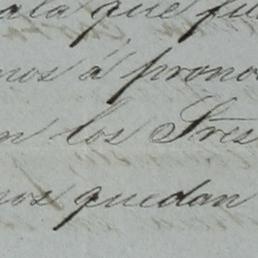 ala que fu
mos á prono
n los Sres
nos quedan